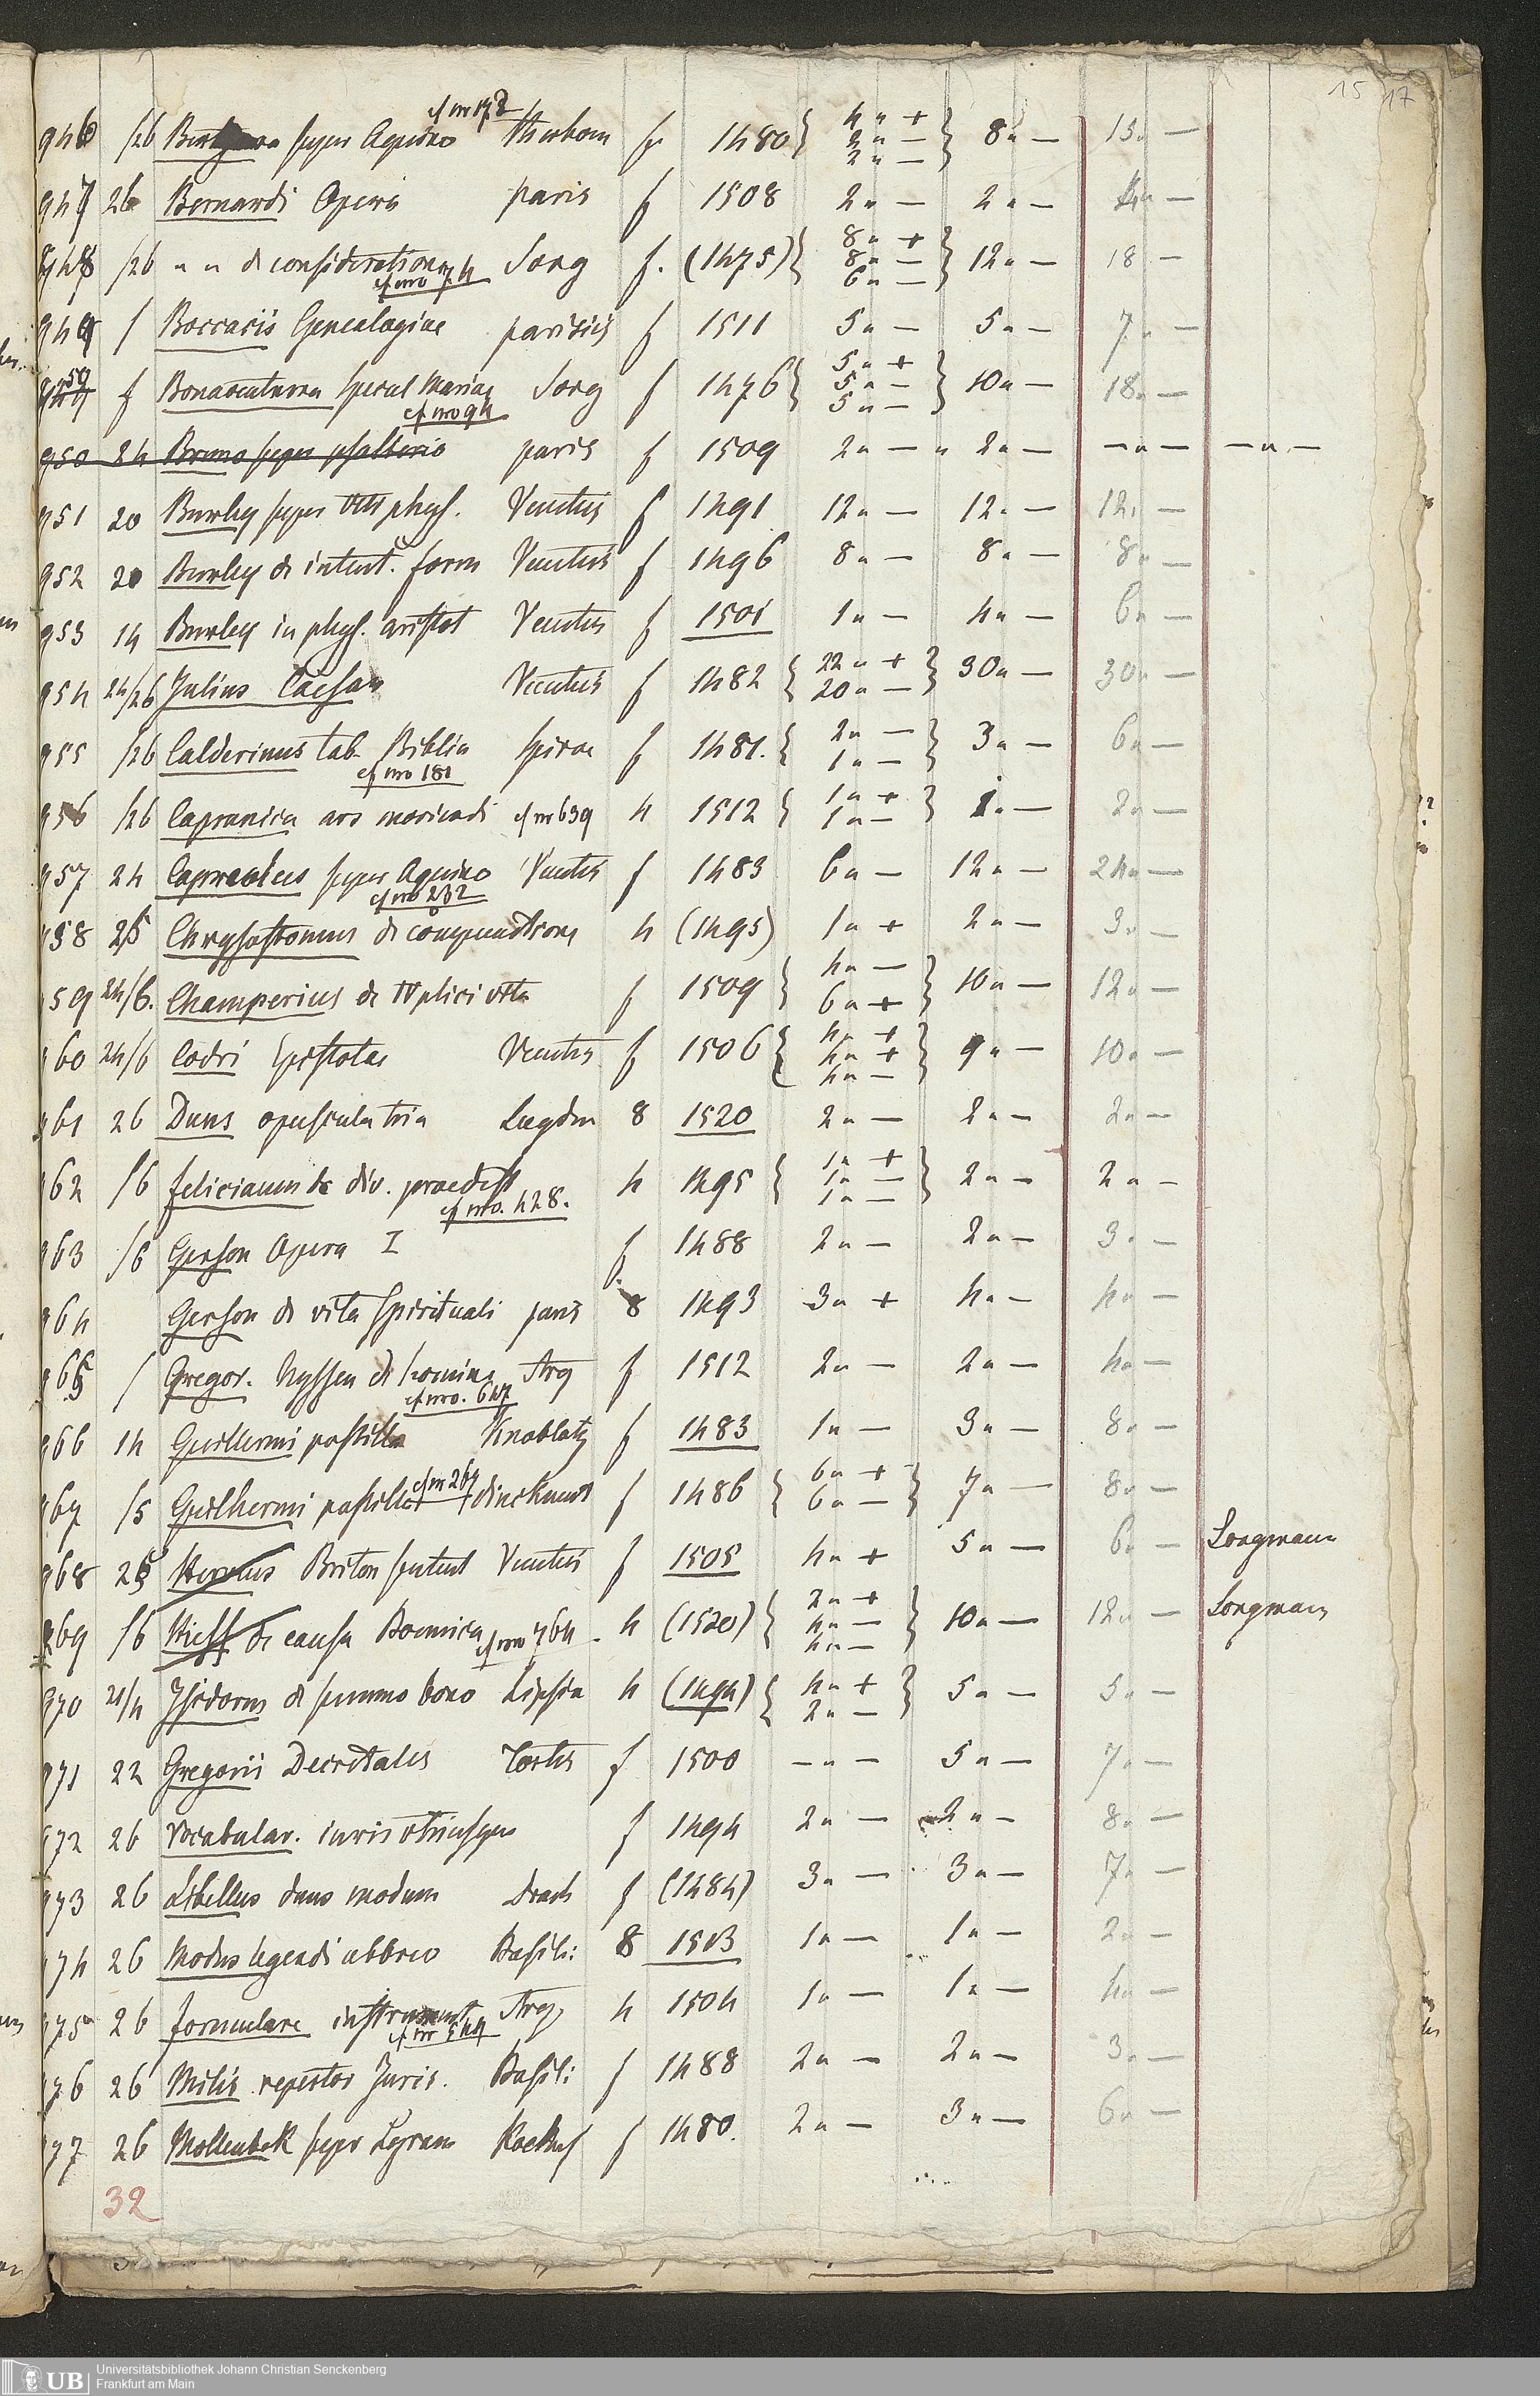 15 17
cf nr 178
946 /26 super Aquino f 1480 { 4 " + 2 " — 2 " — } 8 " — 15 " —
947 26 Bernardi Opera paris f 1508 2 " — 2 " — 4 " —
948 /26 " " de consideratione Sorg f. (1475) { 8 " + 8 " — 6 " — } 12 " — 18 " —
cf nro 74
949 / Boccacii Genealogiae parisiis f 1511 5 " — 5 " — 7 " —
950 f Bonaventura specul Mariae Sorg f 1476 { 5 " + 5 " — 5 " — } 10 " — 18 " —
cf nro 94
950 24 Bruno super psalterio paris f 1509 2 " — " 2 " — — " — — " —
951 20 Burley super phys. Venetiis f 1491 12 " — 12 " — 12 " —
952 20 Burley de intent. form Venetiis f 1496 8 " — 8 " — 8 " —
953 14 Burley in phys. aristot Venetiis f 1501 1 " — 4 " — 6 " —
954 24/26 Julius Caesar Venetiis f 1482 { 22 " + 20 " — } 30 " — 30 " —
955 /26 Calderinus tab. Biblia Spirae f 1481. { 2 " — 1 " — } 3 " — 6 " —
cf nro 181
956 /26 Capranica ars moriendi cf nr 639 4 1512 { 1 " + 1 " — } 1 " — 2 " —
957 24 Capreolus super Aquino Venetiis f 1483 6 " — 12 " — 24 " —
cf nro 232
958 25 Chrysostomus de compunctione 4 (1495) 1 " + 2 " — 3 " —
959 24/6. Champerius de triplici vita f 1509 { 4 " — 6 " + } 10 " — 12 " —
960 24/6 Codri Epistolae Venetiis f 1506 { 4 " + 4 " + 4 " — } 9 " — 10 " —
961 26 Duns opuscula tria Lugdun 8 1520 2 " — 2 " — 2 " —
962 /6 felicianus de div. praedest 4 1495 { 1 " + 1 " — 1 " — } 2 " — 2 " —
cf nro. 428.
963 /6 Gerson Opera I f 1488 2 " — 2 " — 3 " —
964 Gerson de vita spirituali paris 8 1493 3 " + 4 " — 4 " —
965 / Gregor. Nyssen de homine Arg f 1512 2 " — 2 " — 4 " —
cf nro. 647
966 14 Guillermi postilla Knoblotz f 1483 1 " — 3 " — 8 " —
967 /5 Guilhermi postilla cf nr 264 dinckmut f 1486 { 6 " + 6 " — } 7 " — 8 " —
968 25 Herveus Briton sentent Venetiis f 1505 4 " + 5 " — 6 " — Longman
969 /6 de causa Boemica cf nro 764 4 (1520) { 2 " + 4 " — 4 " — } 10 " — 12 " — Longman
970 21/4 Isidorus de summo bono Lipsia 4 (1494) { 4 " + 2 " — } 5 " — 5 " —
971 22 Gregorii Decretales Tortis f 1500 — " — 5 " — 7 " —
972 26 Vocabular. iuris utriusque f 1494 2 " — 2 " — 8 " —
973 26 Libellus dans modum Drach f (1484) 3 " — 3 " — 7 " —
974 26 Modus legendi abbrev Basili: 8 1513 1 " — 1 " — 2 " —
975 26 formulare instrument Arg. 4 1504 1 " — 1 " — 4 " —
976 26 Milis repertor Juris. Basili f 1488 2 " — 2 " — 3 " —
977 26 Mollenbek super Lyram f 1480. 2 " — 3 " — 6 " —
32
UB Universitätsbibliothek Johann Christian Senckenberg
Frankfurt am Main